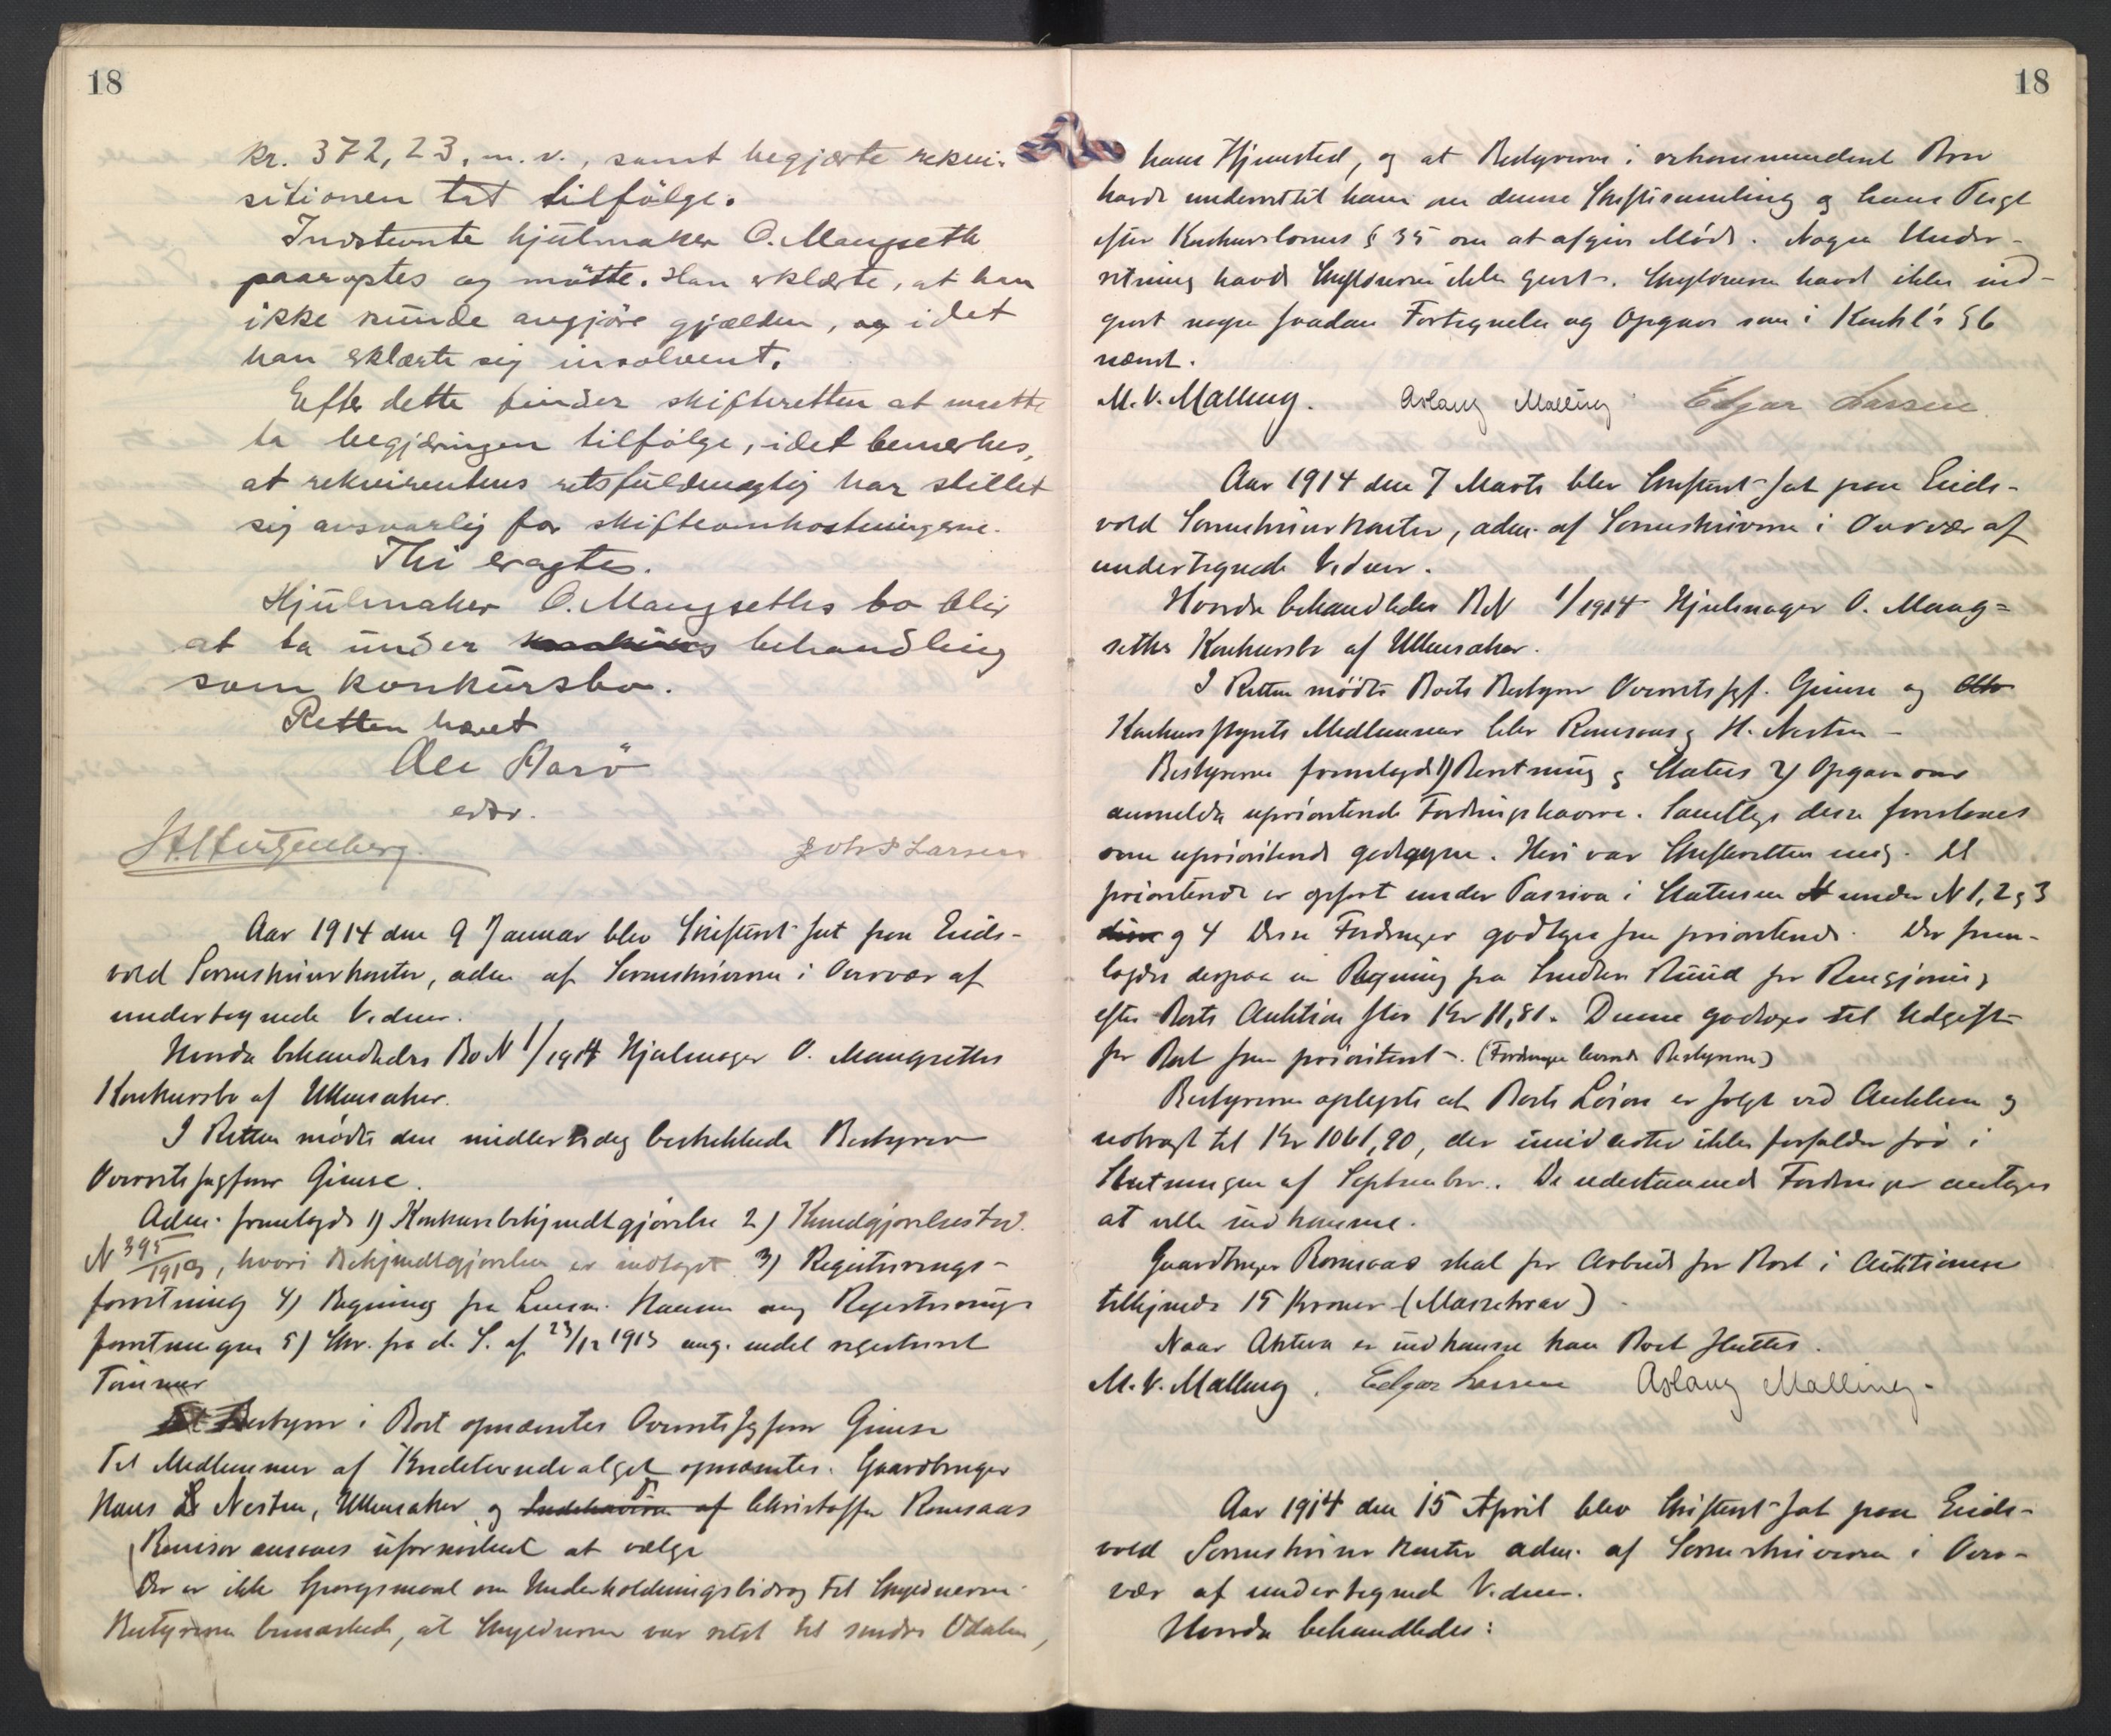 18
kr. 372,23, m. v., samt begjærte rekvi-
sitionen tat tilfölge.
Indstevnte hjulmaker O. Mangseth
paaroptes og mötte. Han erklærte, at han
ikke kunde avgjöre gjælden, og idet
han erklærte sig insolvent.
Efter dette finder skifteretten at maatte
ta begjæringen tilfölge, idet bemerkes,
at rekvirentens retsfuldmægtig har stillet
sig ansvarlig for skifteomkostningerne.
Thi eragtes:
Hjulmaker O. Mangseths bo blir
at ta under behandling
som konkursbo.
Retten hævet
edsv.
John Larsen
Aar 1914 den 9 Januar blev Skifteret sat paa Eids-
vold Sorenskriverkontor, adm. af Sorenskriveren i Overvær af
undertegnede Vidner.
Hvorda behandledes Bo N 1/1914 Hjulmager O. Mangseths
Konkursbo af Ullensaker.
I Retten mødte den midlertidig beskikkede Bestyrer
Overretssagfører Giæse.
Adm. fremlagde 1) Konkursbekjendtgjørelse 2) Kundgjørelsestid.
N 395/1913, hvori Bekjendtgjørelsen er indtaget 3) Registrerings-
forretning 4) Regning fra Lensm. Hansen ang Registrerings-
forretningen 5) Skr. fra d. S. af 23/12 1913 ang. endel registreret
Tømmer
Bestyrer i Boet opnævntes Overretssagfører
Til Medlemmer af Kreditorudvalget opnævntes: Gaardbruger
Hans Nesten, Ullensaker og Christoffer Romsaas
Revisor ansaaes ufornødent at vælge
Der er ikke Spørgsmaal om Underholdningsbidrag til Skyldneren.
Bestyreren bemærkede, at Skyldneren var reist til søndre Odalen,
18
hans Hjemsted, og at Bestyreren i rekommanderet Brev
havde underrettet ham om denne Skiftesamling og hans Pligt
efter Konkurslovens § 35 om at afgive Møde. Nogen Under-
retning havde Skyldneren ikke givet. Skyldneren havde ikke ind-
givet nogen saadan Fortegnelse og Opgave som i Konkl's § 6
nævnt.
M. V. Malling. Aslaug Malling Edgar Larsen
Aar 1914 den 7 Marts blev Skifteret sat paa Eids-
vold Sorenskriverkontor, adm. af Sorenskriveren i Overvær af
undertegnede Vidner.
Hvorda behandledes Bo N 1/1914 Hjulmager O. Mang-
seths Konkursbo af Ullensaker.
I Retten mødte Boets Bestyrer Overretssagf. og
Konkursstyrets Medlemmer Romsaas og H. Nesten
Bestyreren fremlagde 1) Beretning og Status 2) Opgave over
anmeldte uprioriterede Fordringshavere. Samtlige disse foresloges
som uprioriterede godtagne. Heri var Skifteretten enig. Af
prioriterede er opført under Passiva i Statusen under N 1, 2 og 3
og 4 Disse Fordringer godtages som prioriterede. Der frem-
lagdes derpaa en Regning fra Ruud for Rengjøring
efter Boets Auktion stor Kr 11,81. Denne godtoges til Udgift
for Boet som prioriteret. (Fordringen havende Bestyreren)
Bestyreren oplyste at Boets Løsøre er solgt ved Auktion og
udbragt til Kr 1061,90, der imidlertid ikke forfalder før i
Slutningen af September. De udestaaende Fordringer antages
at ville indkomme.
Gaardbruger Romsaas skal for Arbeide for Boet i Auktionen
tilkjendes 15 Kroner (Massekrav)
Naar Aktiva er indkomne kan Boet sluttes.
M. V. Malling. Edgar Larsen Aslaug Malling.
Aar 1914 den 15 April blev Skifteret sat paa Eids-
vold Sorenskriver kontor adm. af Sorenskriveren i Over-
vær af undertegnede Vidner.
Hvorda behandledes: